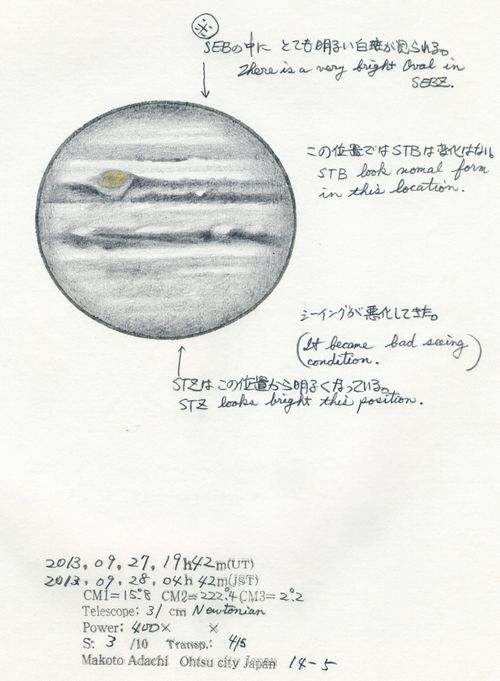 ※
SEBの中に とても明るい白斑が見られる。
There is a very bright Oval in
SEBZ.
この位置ではSTBは変化はない。
STB look nomal form
in this location.
シーイングが悪化してきた。
(It became bad seeing
condition.)
STZはこの位置から明るくなっている。
STZ looks bright this position.
2013, 09, 27, 19h42m(UT)
2013, 09, 28, 04h 42m(JST)
CM1=15°.8 CM2=222°.4 CM3=2°.2
Telescope: 31 cm Newtonian
Power: 400× ×
S: 3 /10 Transp.: 4/5
Makoto Adachi Ohtsu city Japan 14-5